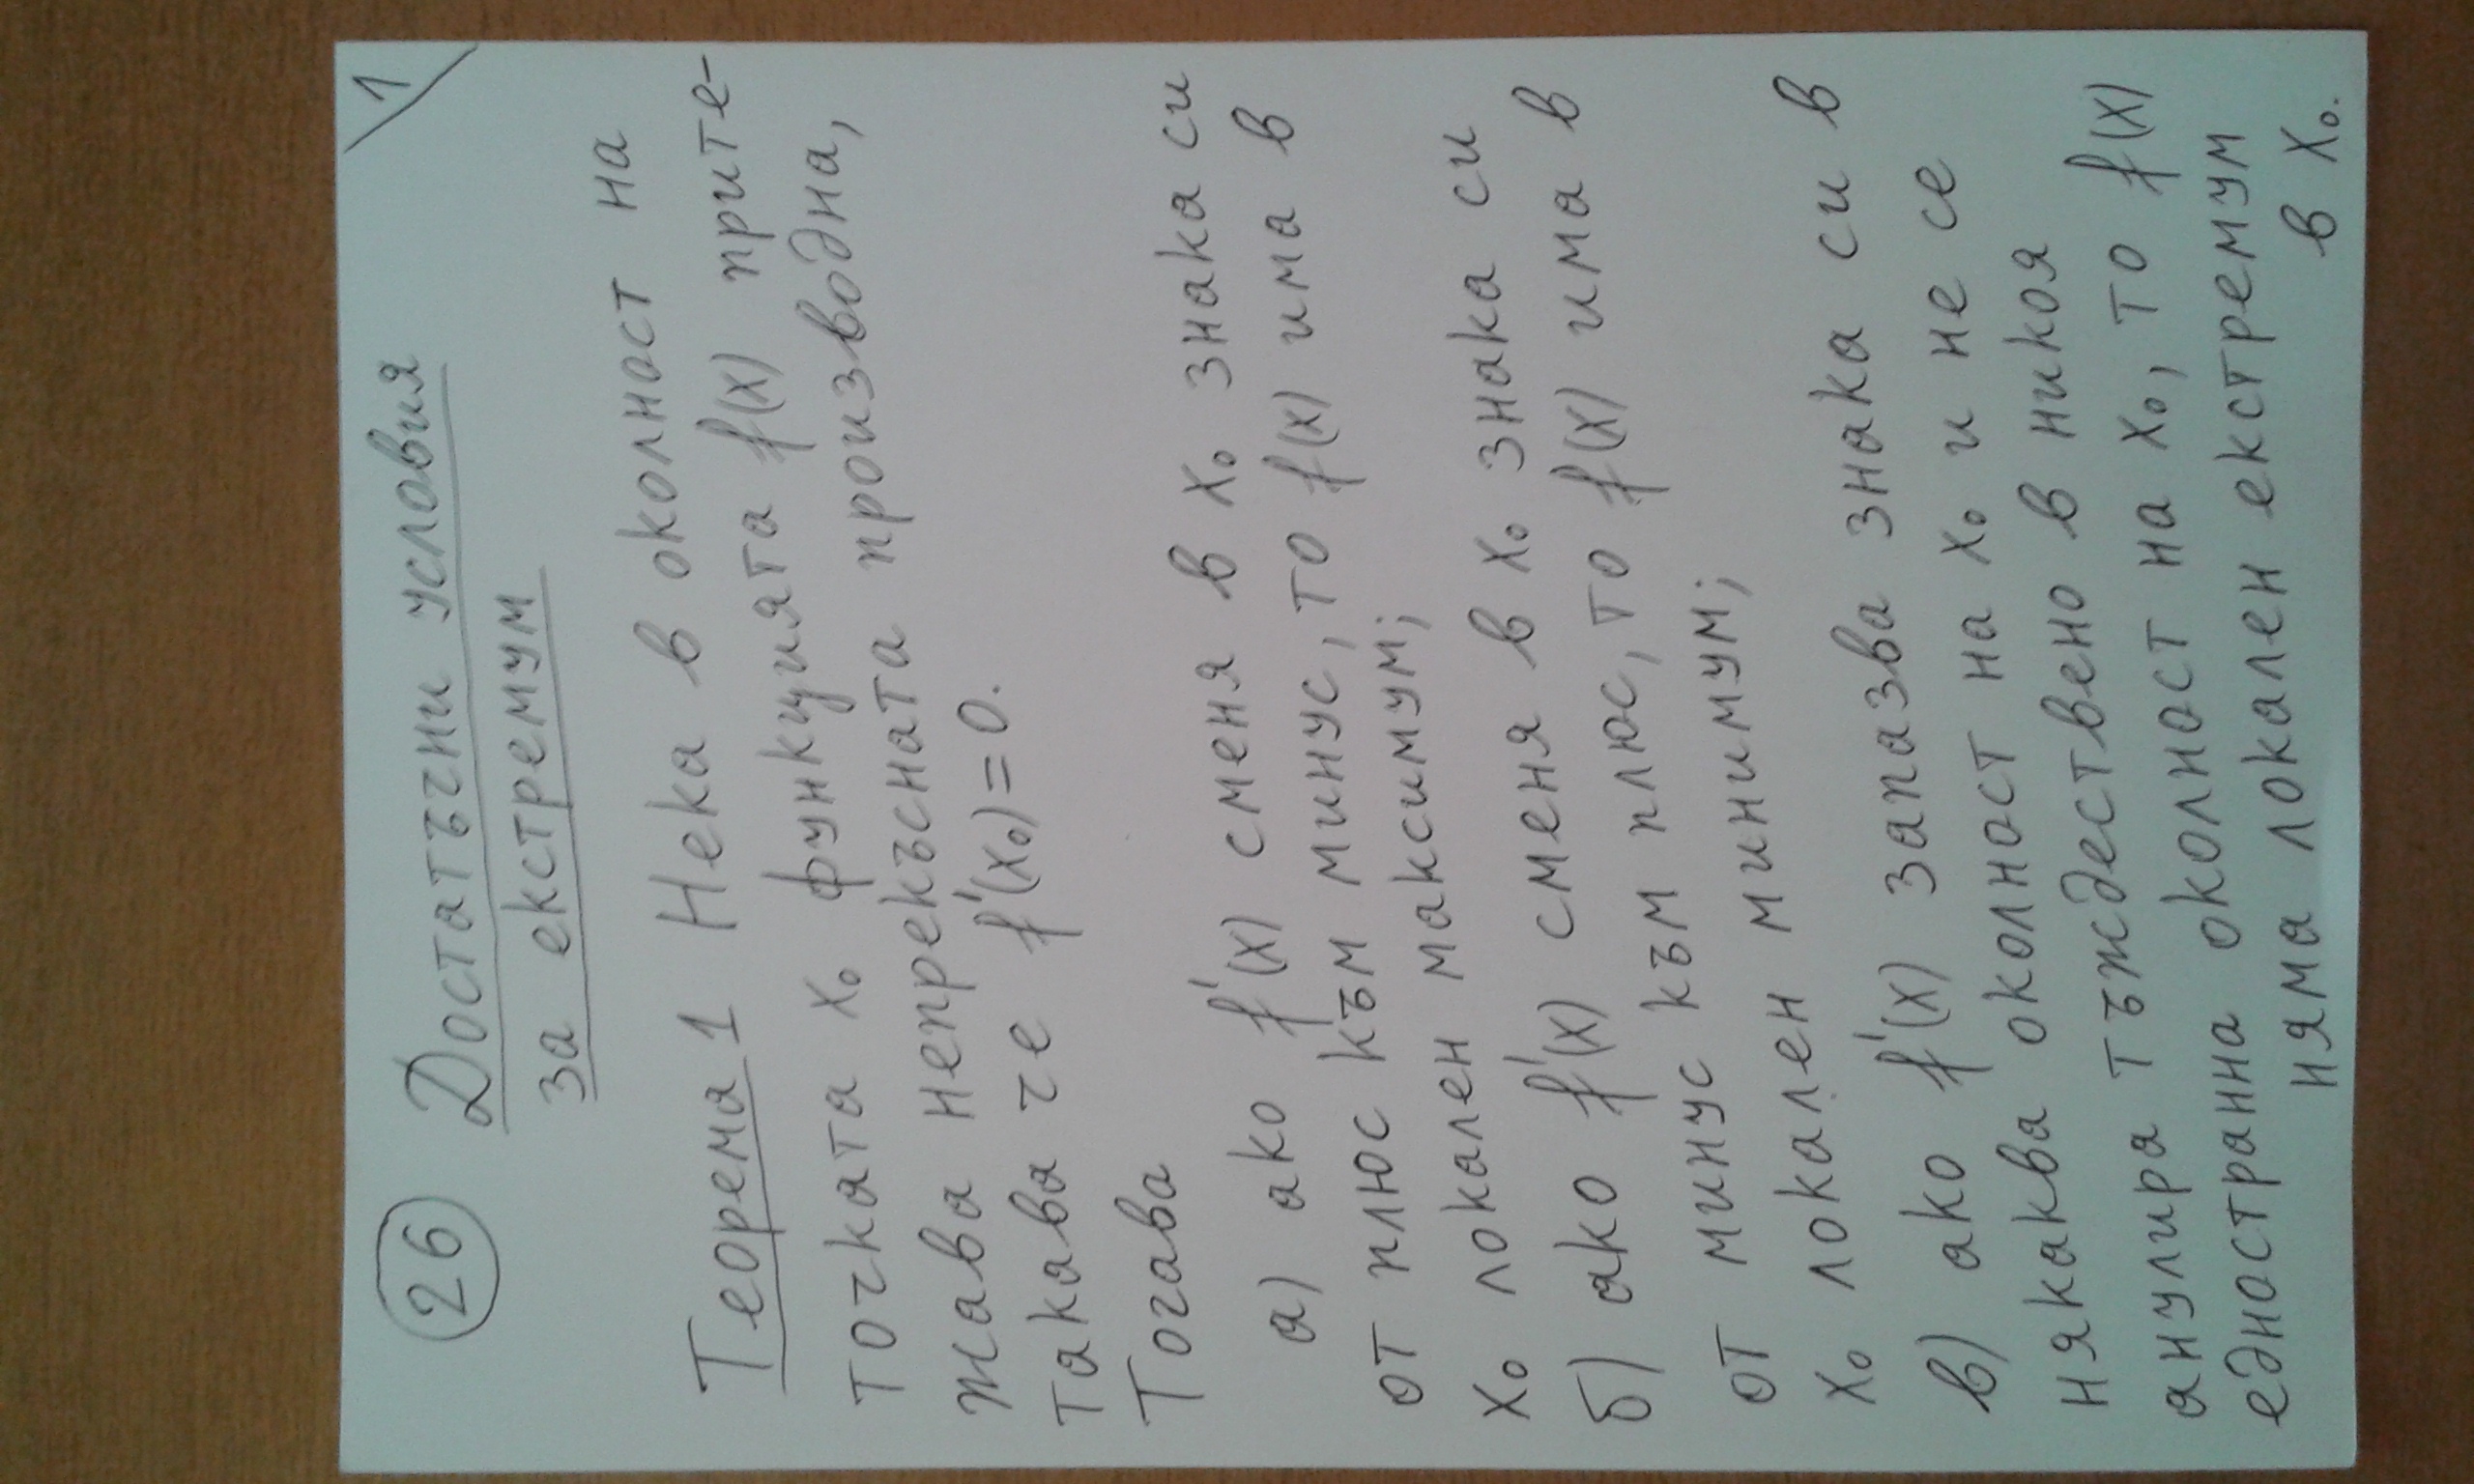 26 Достатъчни условия 1
за екстремум
Теорема 1 Нека в околност на
точката x₀ функцията f(x) прите-
жава непрекъсната производна,
такава че f'(x₀)=0.
Тогава
а) ако f'(x) сменя в x₀ знака си
от плюс към минус, то f(x) има в
x₀ локален максимум;
б) ако f'(x) сменя в x₀ знака си
от минус към плюс, то f(x) има в
x₀ локален минимум;
в) ако f'(x) запазва знака си в
някаква околност на x₀ и не се
анулира тъждествено в никоя
едностранна околност на x₀, то f(x)
няма локален екстремум
в x₀.